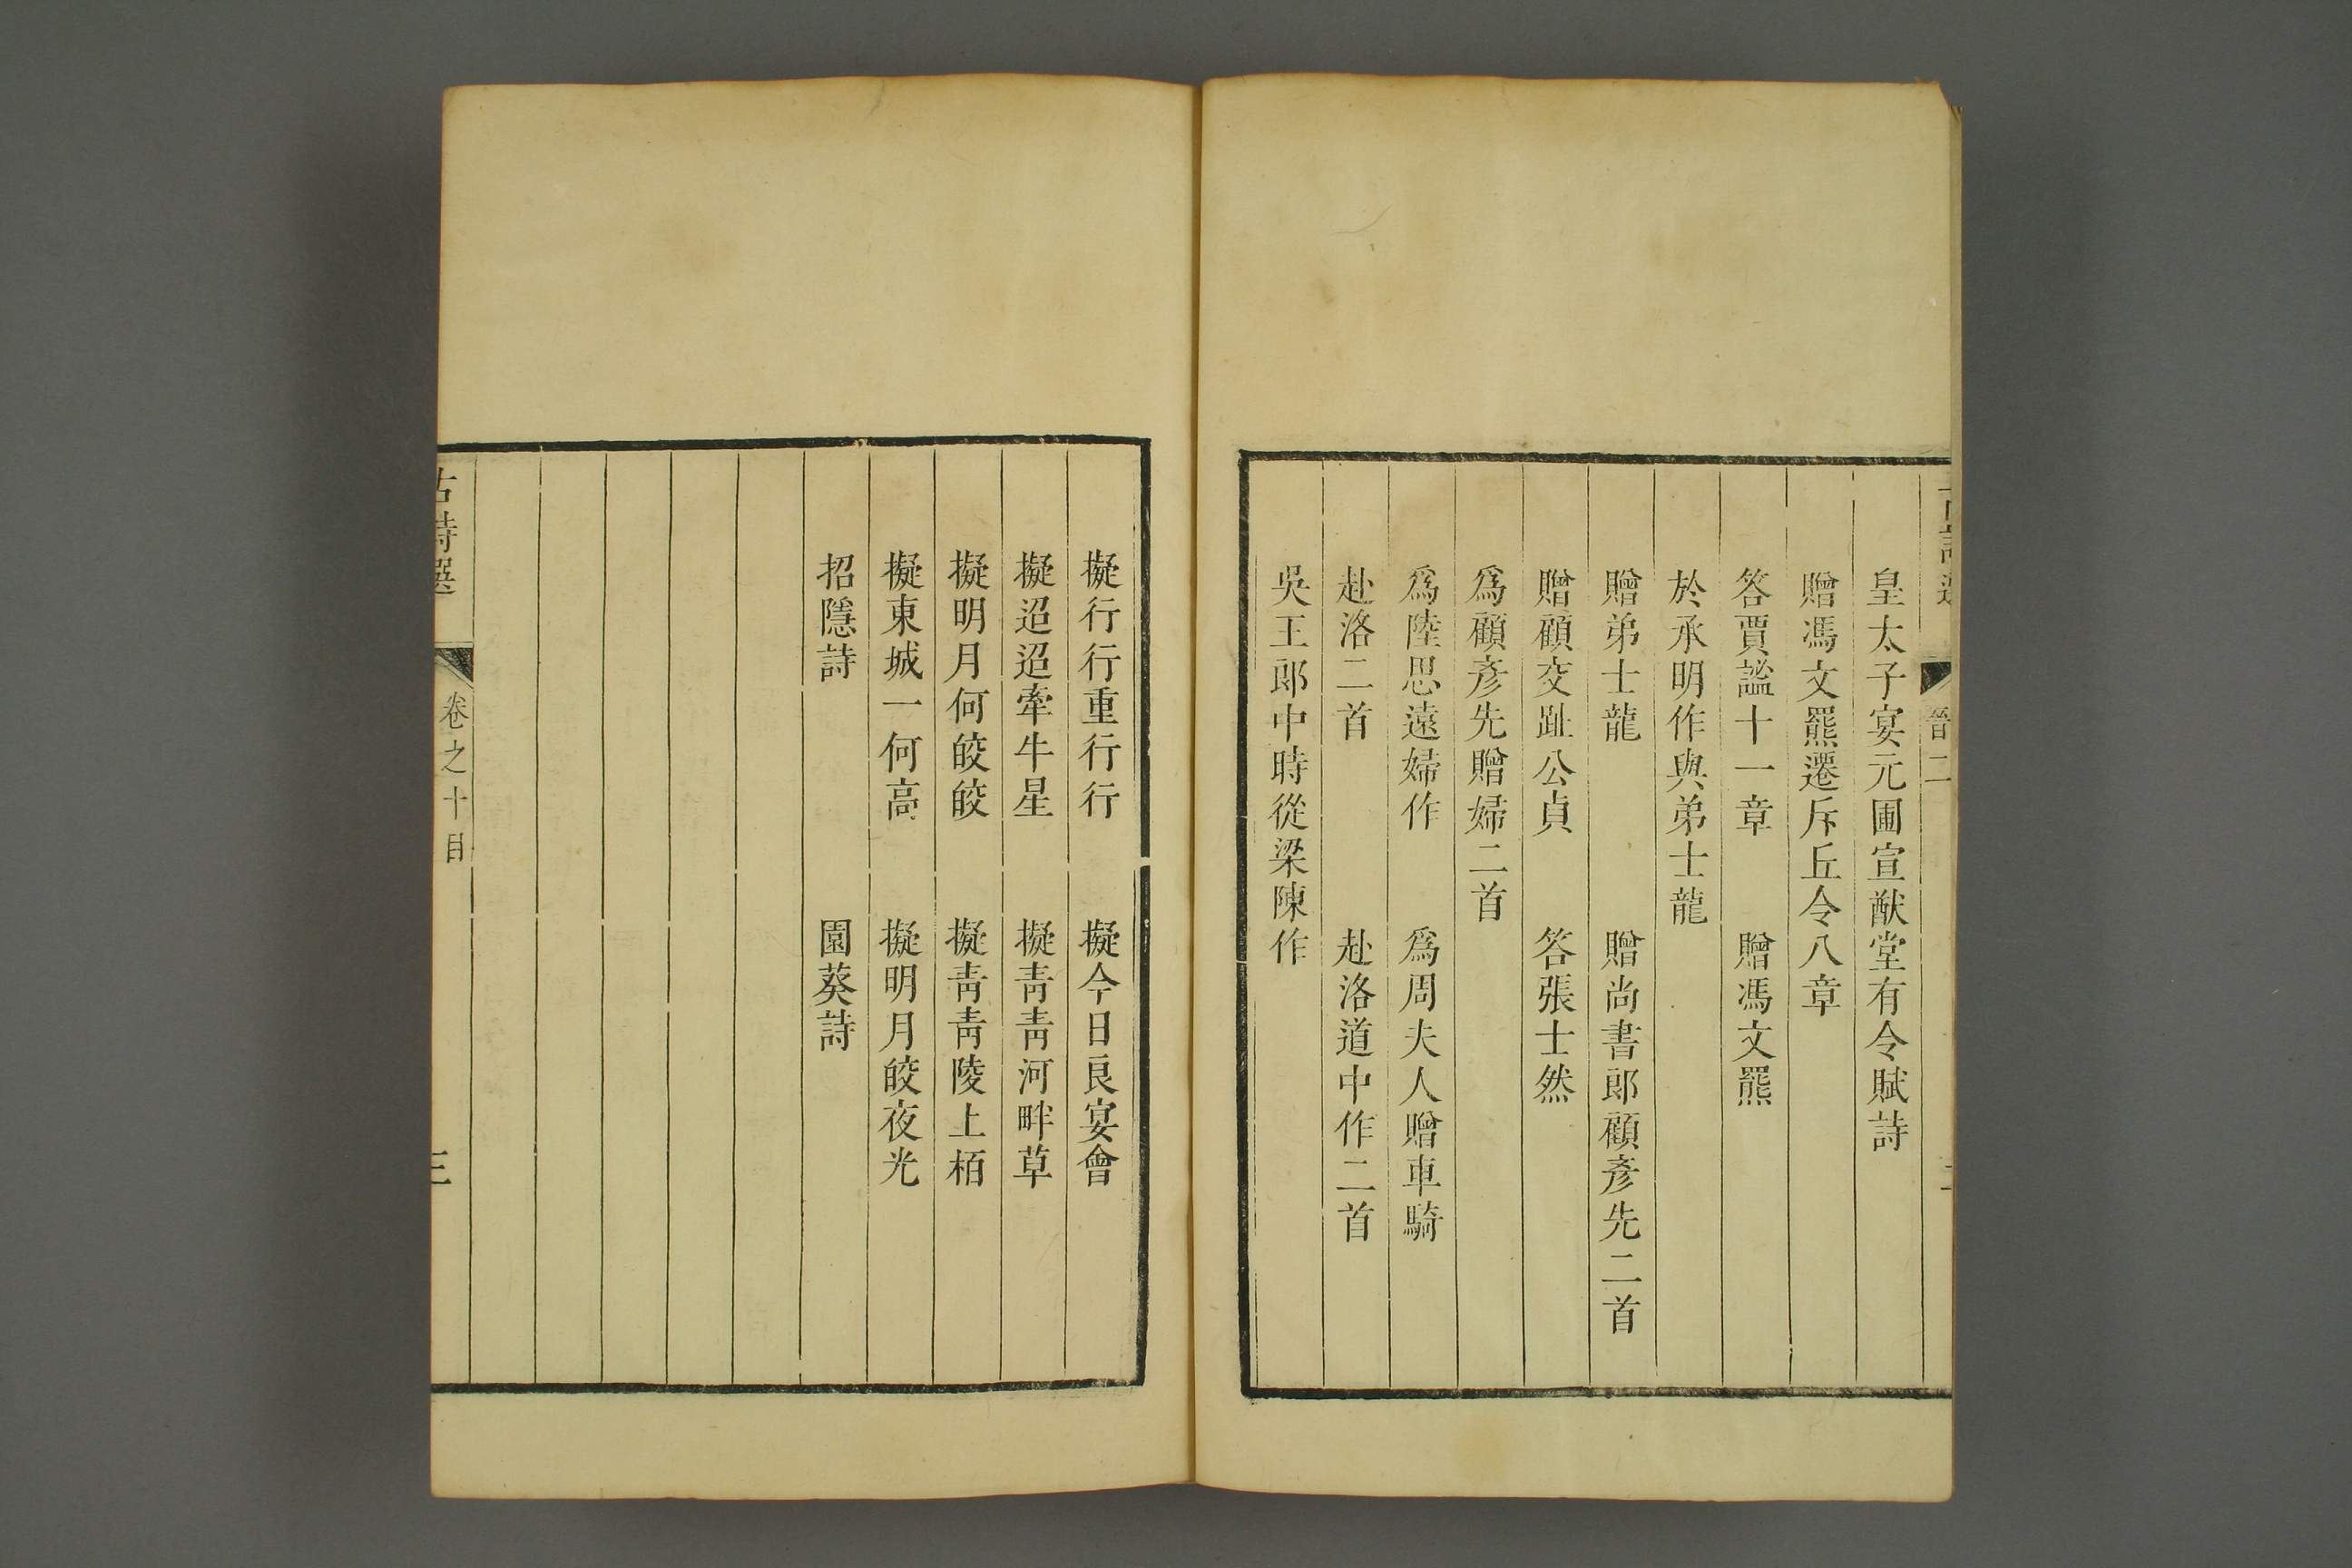 晉二
皇太子宴元圃宣猷堂有令賦詩
贈馮文羆遷斥丘令八章
答賈謐十一章　贈馮文羆
於承明作與弟士龍
贈弟士龍　贈尚書郎顧彥先二首
贈顧交趾公貞　答張士然
爲顧彥先贈婦二首
爲陸思遠婦作　爲周夫人贈車騎
赴洛二首　赴洛道中作二首
吳王郎中時從梁陳作
擬行行重行行　擬今日良宴會
擬迢迢牽牛星　擬靑靑河畔草
擬明月何皎皎　擬靑靑陵上栢
擬東城一何高　擬明月皎夜光
招隱詩　園葵詩
古詩選　卷之十目　三